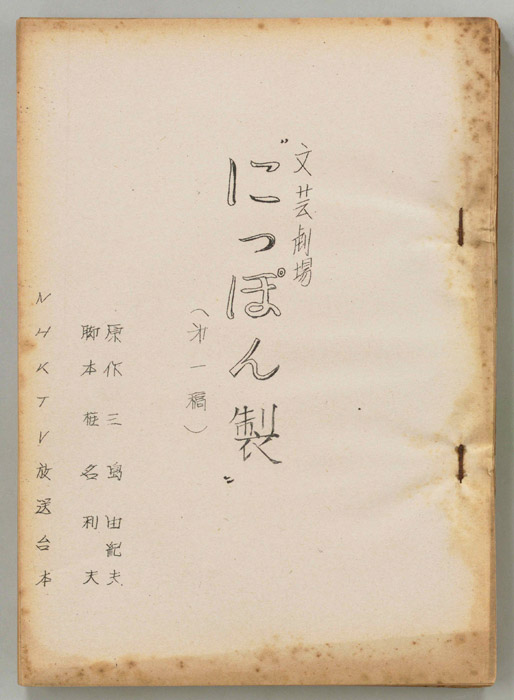 文芸劇場
"にっぽん製"
（第一稿）
原作 三島由紀夫
脚本 椎名利夫
NHKTV放送台本